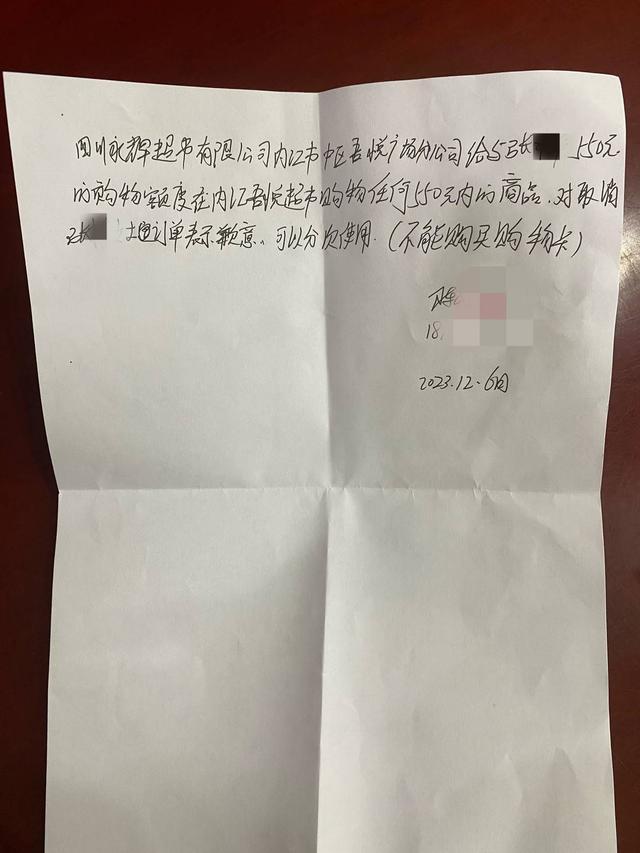 四川永辉超市有限公司内江市中区吾悦广场分公司给与张 550元
的购物额度在内江吾悦超市购物任何550元内的商品.对取消
张 土豆订单表示歉意.可以分次使用.(不能购买购物卡)
18
2023.12.6日